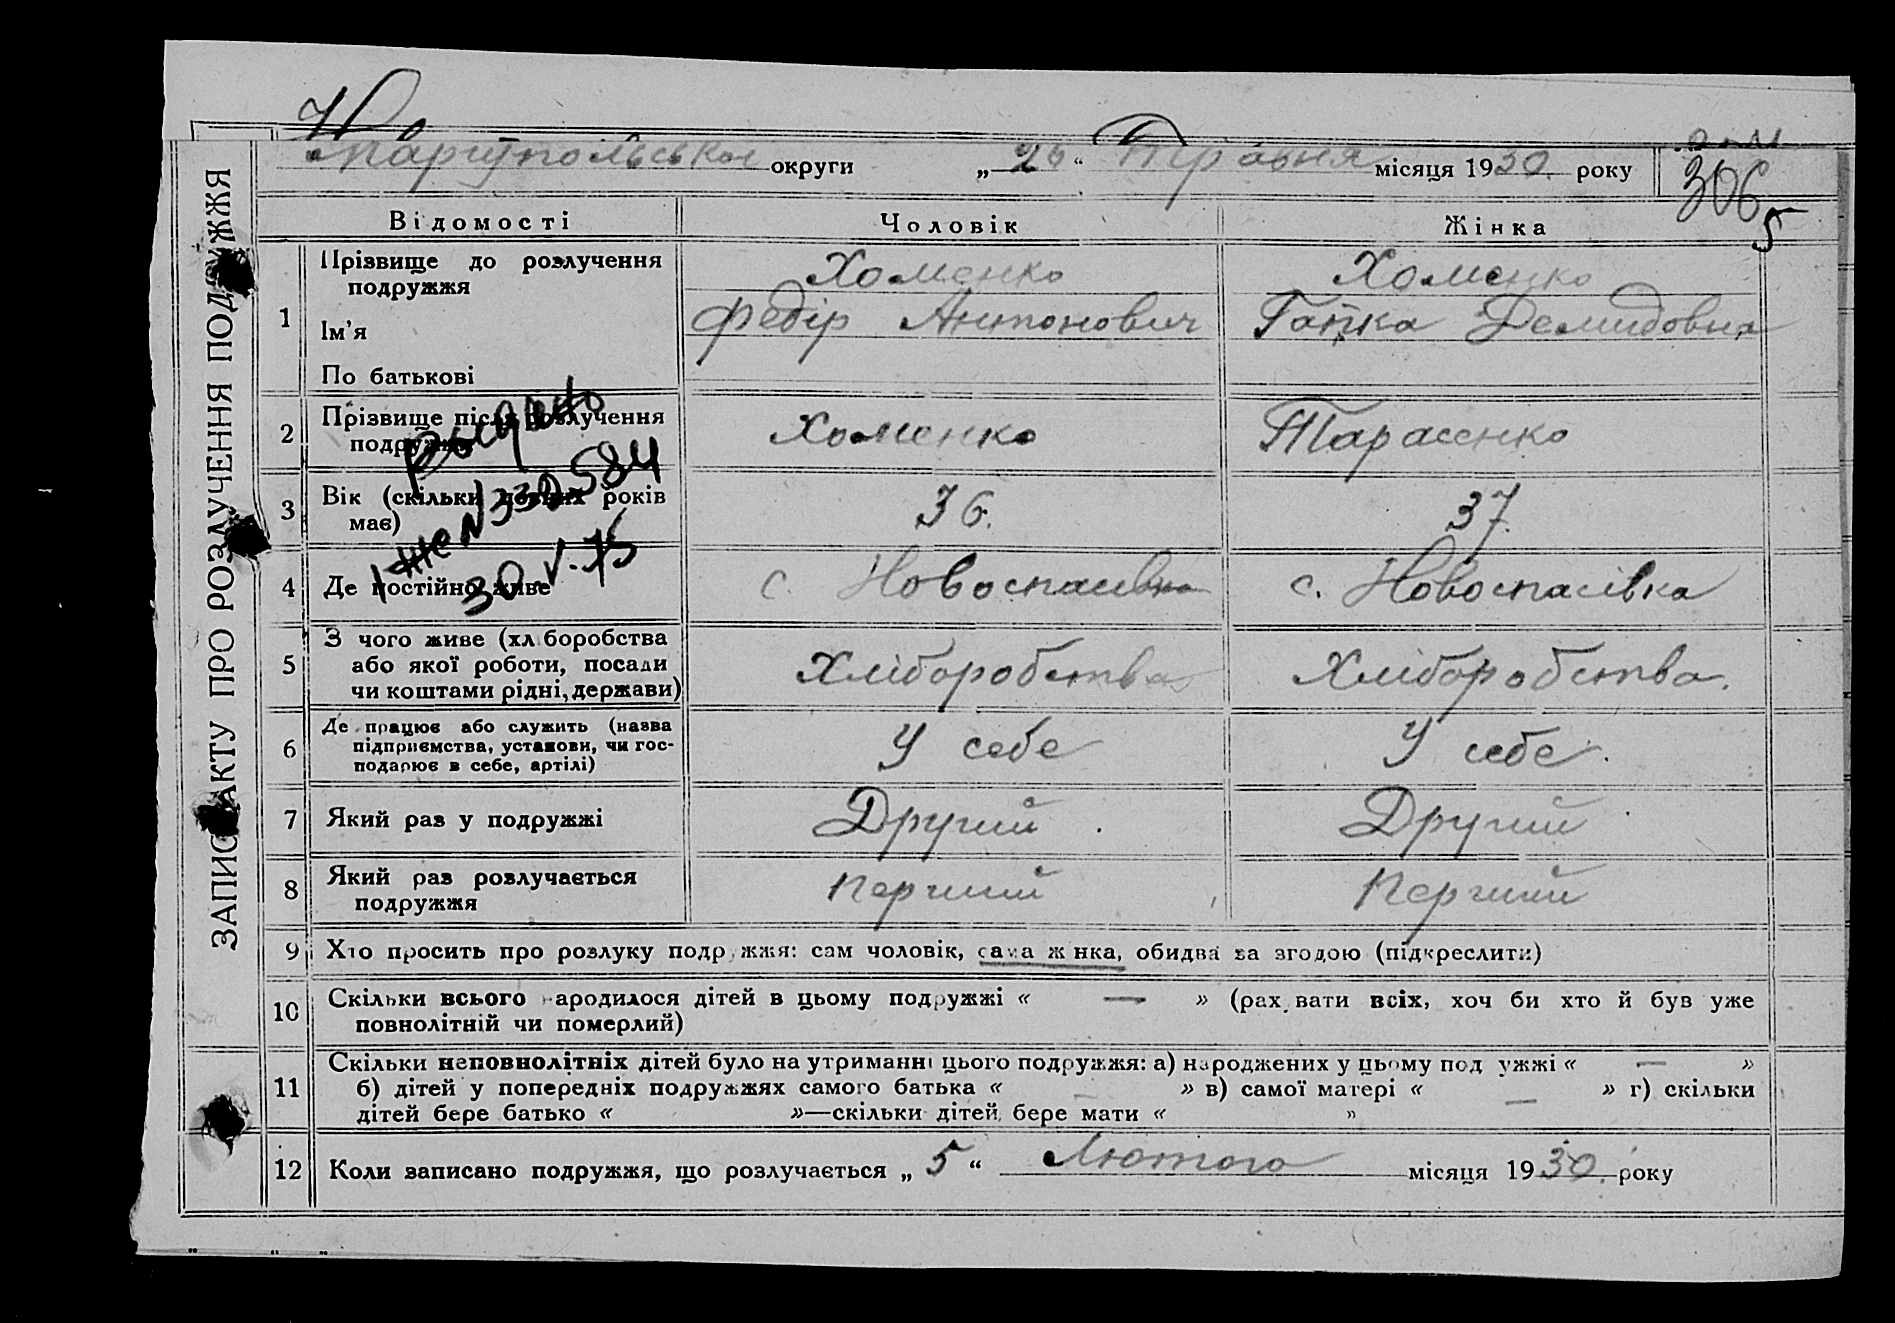 Маріупольської округи „26“ Травня місяця 1930. року
306
5
ЗАПИС АКТУ ПРО РОЗЛУЧЕННЯ ПОДРУЖЖЯ
Відомості Чоловік Жінка
1 Прізвище до розлучення Хоменко Хоменко
подружжя
Ім’я Федір Антонович Гапка Демидовна
По батькові
2 Прізвище після розлучення Хоменко Тарасенко
подружжя
3 Вік (скільки повних років 36. 37.
має)
4 Де постійно живе с. Новоспасівка с. Новоспасівка
5 З чого живе (хліборобства Хліборобства Хліборобства.
або якої роботи, посади
чи коштами рідні, держави)
6 Де працює або служить (назва У себе У себе.
підприємства, установи, чи гос-
подарює в себе, артілі)
7 Який раз у подружжі Другий Другий
8 Який раз розлучається Перший Перший
подружжя
Выдано
ЖС N 330584
30.V.75
9 Хто просить про розлуку подружжя: сам чоловік, сама жінка, обидва за згодою (підкреслити)
10 Скільки всього народилося дітей в цьому подружжі « — » (рахувати всіх, хоч би хто й був уже
повнолітній чи померлий)
11 Скільки неповнолітніх дітей було на утриманні цього подружжя: а) народжених у цьому подружжі « — »
б) дітей у попередніх подружжях самого батька « — » в) самої матері « — » г) скільки
дітей бере батько « »—скільки дітей бере мати « »
12 Коли записано подружжя, що розлучається „5“ Лютого місяця 1930. року